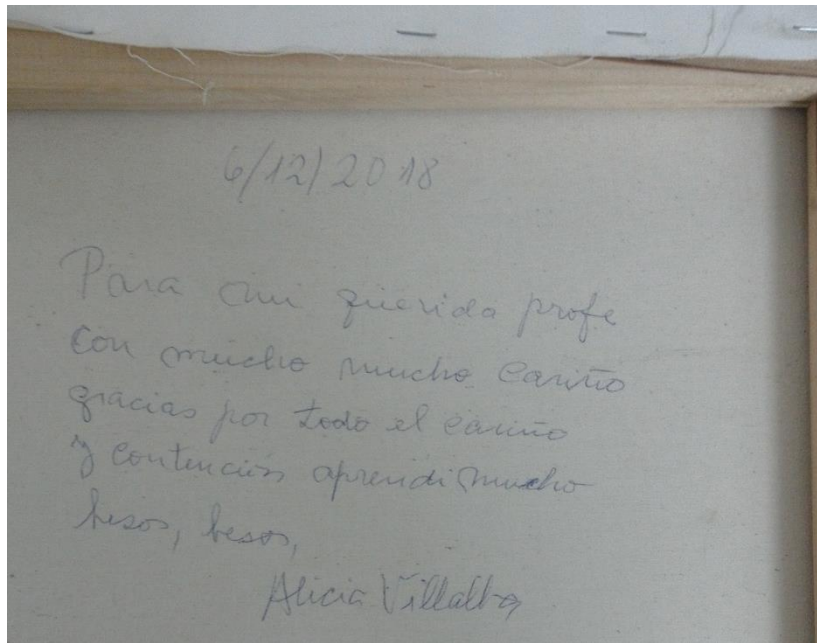 6/12/2018
Para mi querida profe
con mucho mucho cariño
gracias por todo el cariño
y contencion aprendi mucho
besos, besos,
Alicia Villalba